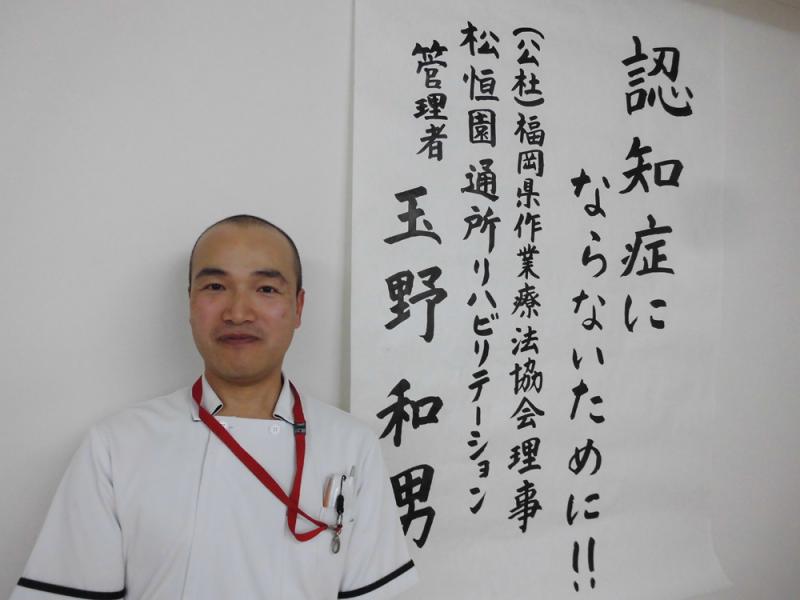 認知症に
ならないために!!
(公社)福岡県作業療法協会理事
松恒園 通所リハビリテーション
管理者
玉野 和男